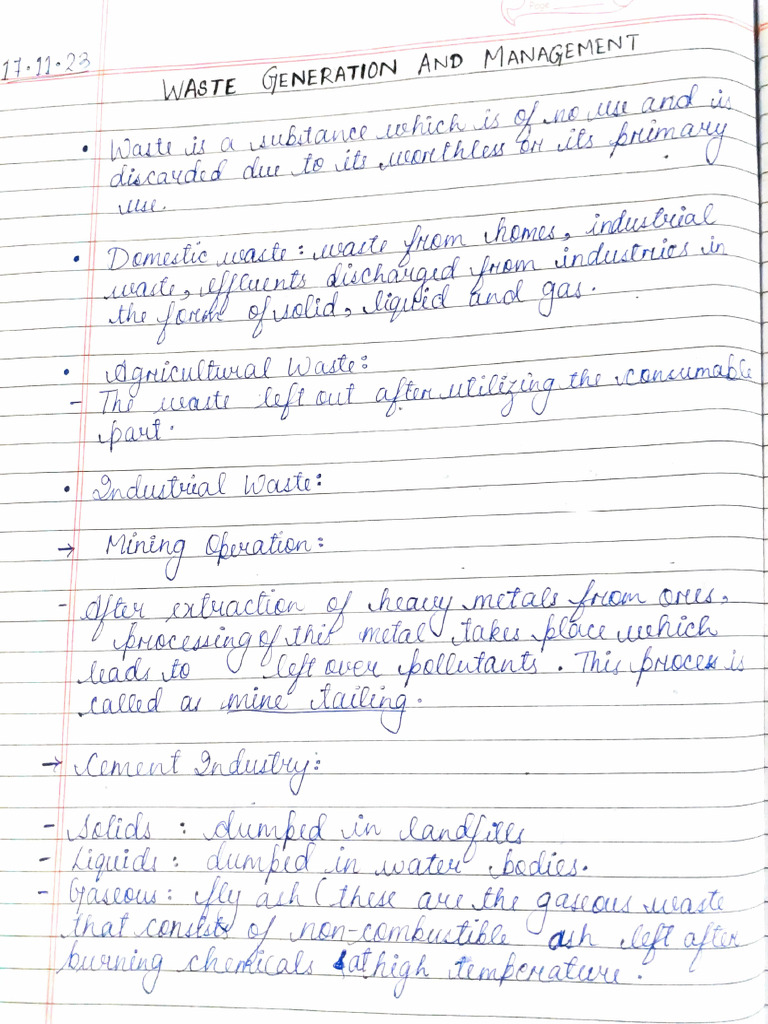 17.11.23
WASTE GENERATION AND MANAGEMENT
• Waste is a substance which is of no use and is
discarded due to its worthless or its primary
use.
• Domestic waste: waste from homes, industrial
waste, effluents discharged from industries in
the form of solid, liquid and gas.
• Agricultural Waste:
- The waste left out after utilizing the consumable
part.
• Industrial Waste:
→ Mining Operation:
- After extraction of heavy metals from ores,
processing of this metal takes place which
leads to left over pollutants. This process is
called as mine tailing.
→ Cement Industry:
- Solids : dumped in landfills
- Liquids : dumped in water bodies.
- Gaseous : fly ash (these are the gaseous waste
that consists of non-combustible ash left after
burning chemicals at high temperature.